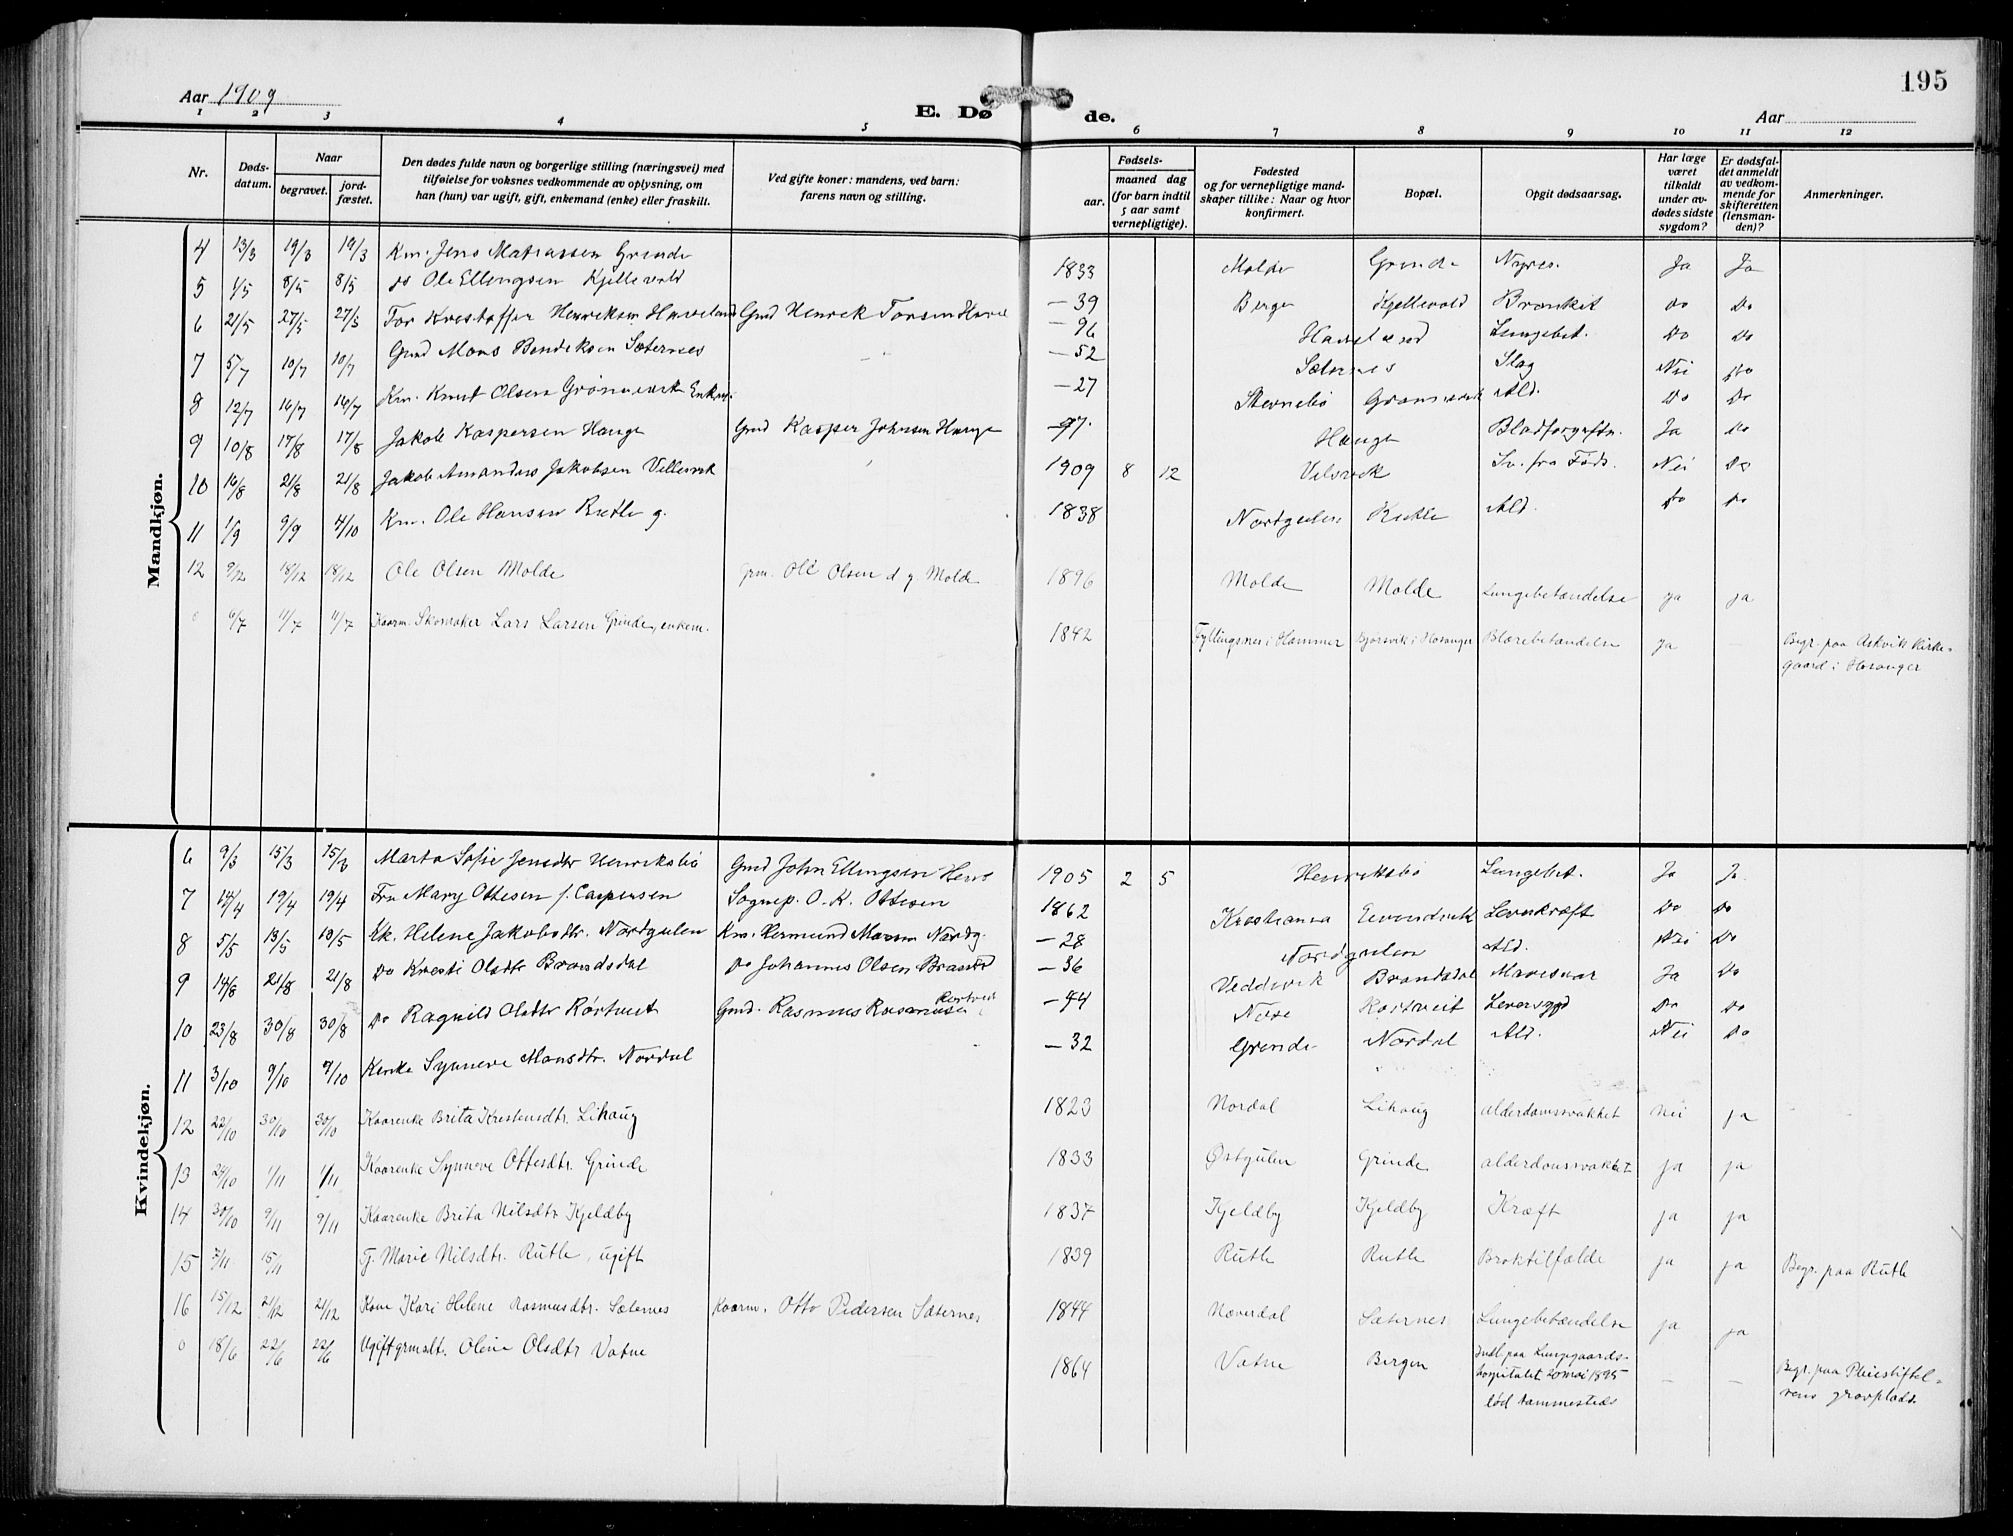 195
Aar 1909
E. Dø
de.
Aar
1 2 3 4 5 6 7 8 9 10 11 12
Nr.
Døds-
datum.
Naar
begravet.
jord-
fæstet.
Den dødes fulde navn og borgerlige stilling (næringsvei) med
tilføielse for voksnes vedkommende av oplysning, om
han (hun) var ugift, gift, enkemand (enke) eller fraskilt.
Ved gifte koner: mandens, ved barn:
farens navn og stilling.
Fødsels-
aar.
maaned dag
(for barn indtil
5 aar samt
vernepligtige).
Fødested
og for vernepligtige mand-
skaper tillike: Naar og hvor
konfirmert.
Bopæl.
Opgit dødsaarsag.
Har læge
været
tilkaldt
under av-
dødes sidste
sygdom?
Er dødsfal-
det anmeldt
av vedkom-
mende for
skifteretten
(lensman-
den)?
Anmerkninger.
Mandkjøn.
4 13/3 19/3 19/3 Km. Jens Matiassen Grinde 1833 Molde Grinde Nyres. Ja Ja
5 1/5 8/5 8/5 do Ole Ellingsen Kjellevold - 39 Berge Kjellevold Bronkit do Do
6 21/5 27/5 27/5 Tor Kristoffer Henriksen Gmd Henrik Torsen - 96 Lungebet. Do Do
7 5/7 10/7 10/7 Gmd Mons Bendiksen Sæternes - 52 Sæternes Slag Nei Do
8 12/7 16/7 16/7 Km. Knut Olsen - 27 Ald. Do Do
9 10/8 17/8 17/8 Jakob Kaspersen Hauge Gmd Kasper Johnsen Hauge - 97 Hauge Blodforgiftn. Ja Do
10 16/8 21/8 21/8 Jakob Amandus Jakobsen 1909 8 12 Sv. fra Føds. Nei Do
11 1/9 9/9 4/10 Km. Ole Hansen Rutle g. 1838 Nordgulen Rutle Ald. Do Do
12 9/12 18/12 18/12 Ole Olsen Molde Grm. Ole Olsen d y. Molde 1896 Molde Molde Lungebetændelse ja ja
0 6/7 11/7 11/7 Kaarm. Skomaker Lars Larsen Grinde, enkem. 1842 Fyllingsnes i Hammer Bjorsvik i Hosanger Blærebetændelse ja - Begr. paa Askvik kirke-
gaard i Hosanger
Kvindekjøn.
6 9/3 15/3 15/3 Marta Sofie Jensdtr Henriksbø Gmd John Ellingsen 1905 2 5 Henriksbø Lungebet. Ja Ja
7 14/4 19/4 19/4 Fru Mary Ottesen f. Caspersen Sognep. O. K. Ottesen 1862 Kristiania Eivindvik Leverkræft Do Do
8 5/5 13/5 19/5 Kk. Helene Jakobsdtr. Nordgulen Km. Hermund Nordg. - 28 Nordgulen Ald. Nei Do
9 14/8 21/8 21/8 Do Kristi Olsdtr Brandsdal Do Johannes Olsen - 36 Brandsdal Mavesaar Ja Do
10 23/8 30/8 30/8 Do Ragnild Olsdtr Gmd. Rasmus Rasmussen - 44 Leversygd Do Do
11 3/10 9/10 9/10 Kenke Synneve Monsdtr. Nordal - 32 Grinde Nordal Ald. Nei Do
12 22/10 30/10 30/10 Kaarenke Brita Kristensdtr. Lihaug 1823 Nordal Lihaug alderdomssvakhet nei ja
13 24/10 1/11 1/11 Kaarenke Synneve Ottesdtr. Grinde 1833 Østgulen Grinde alderdomssvakhet ja ja
14 30/10 9/11 9/11 Kaarenke Brita Nilsdtr Kjeldby 1837 Kjeldby Kjeldby Kræft ja ja
15 7/11 15/11 Marie Nilsdtr. Rutle, ugift 1839 Rutle Rutle Broktilfælde ja ja Begr. paa Rutle
16 15/12 21/12 21/12 Kone Kari Helene Rasmusdtr. Sæternes Kaarm. Otto Pedersen Sæternes 1844 Næverdal Sæternes Lungebetændelse ja ja
0 18/6 22/6 22/6 Ugift grmdtr. Oline Olsdtr Vatne 1864 Vatne Bergen Indl. paa Lungegaards-
hospitalet 20 mai 1895
død sammesteds - - Begr. paa Pleiestiftel-
sens gravplads.